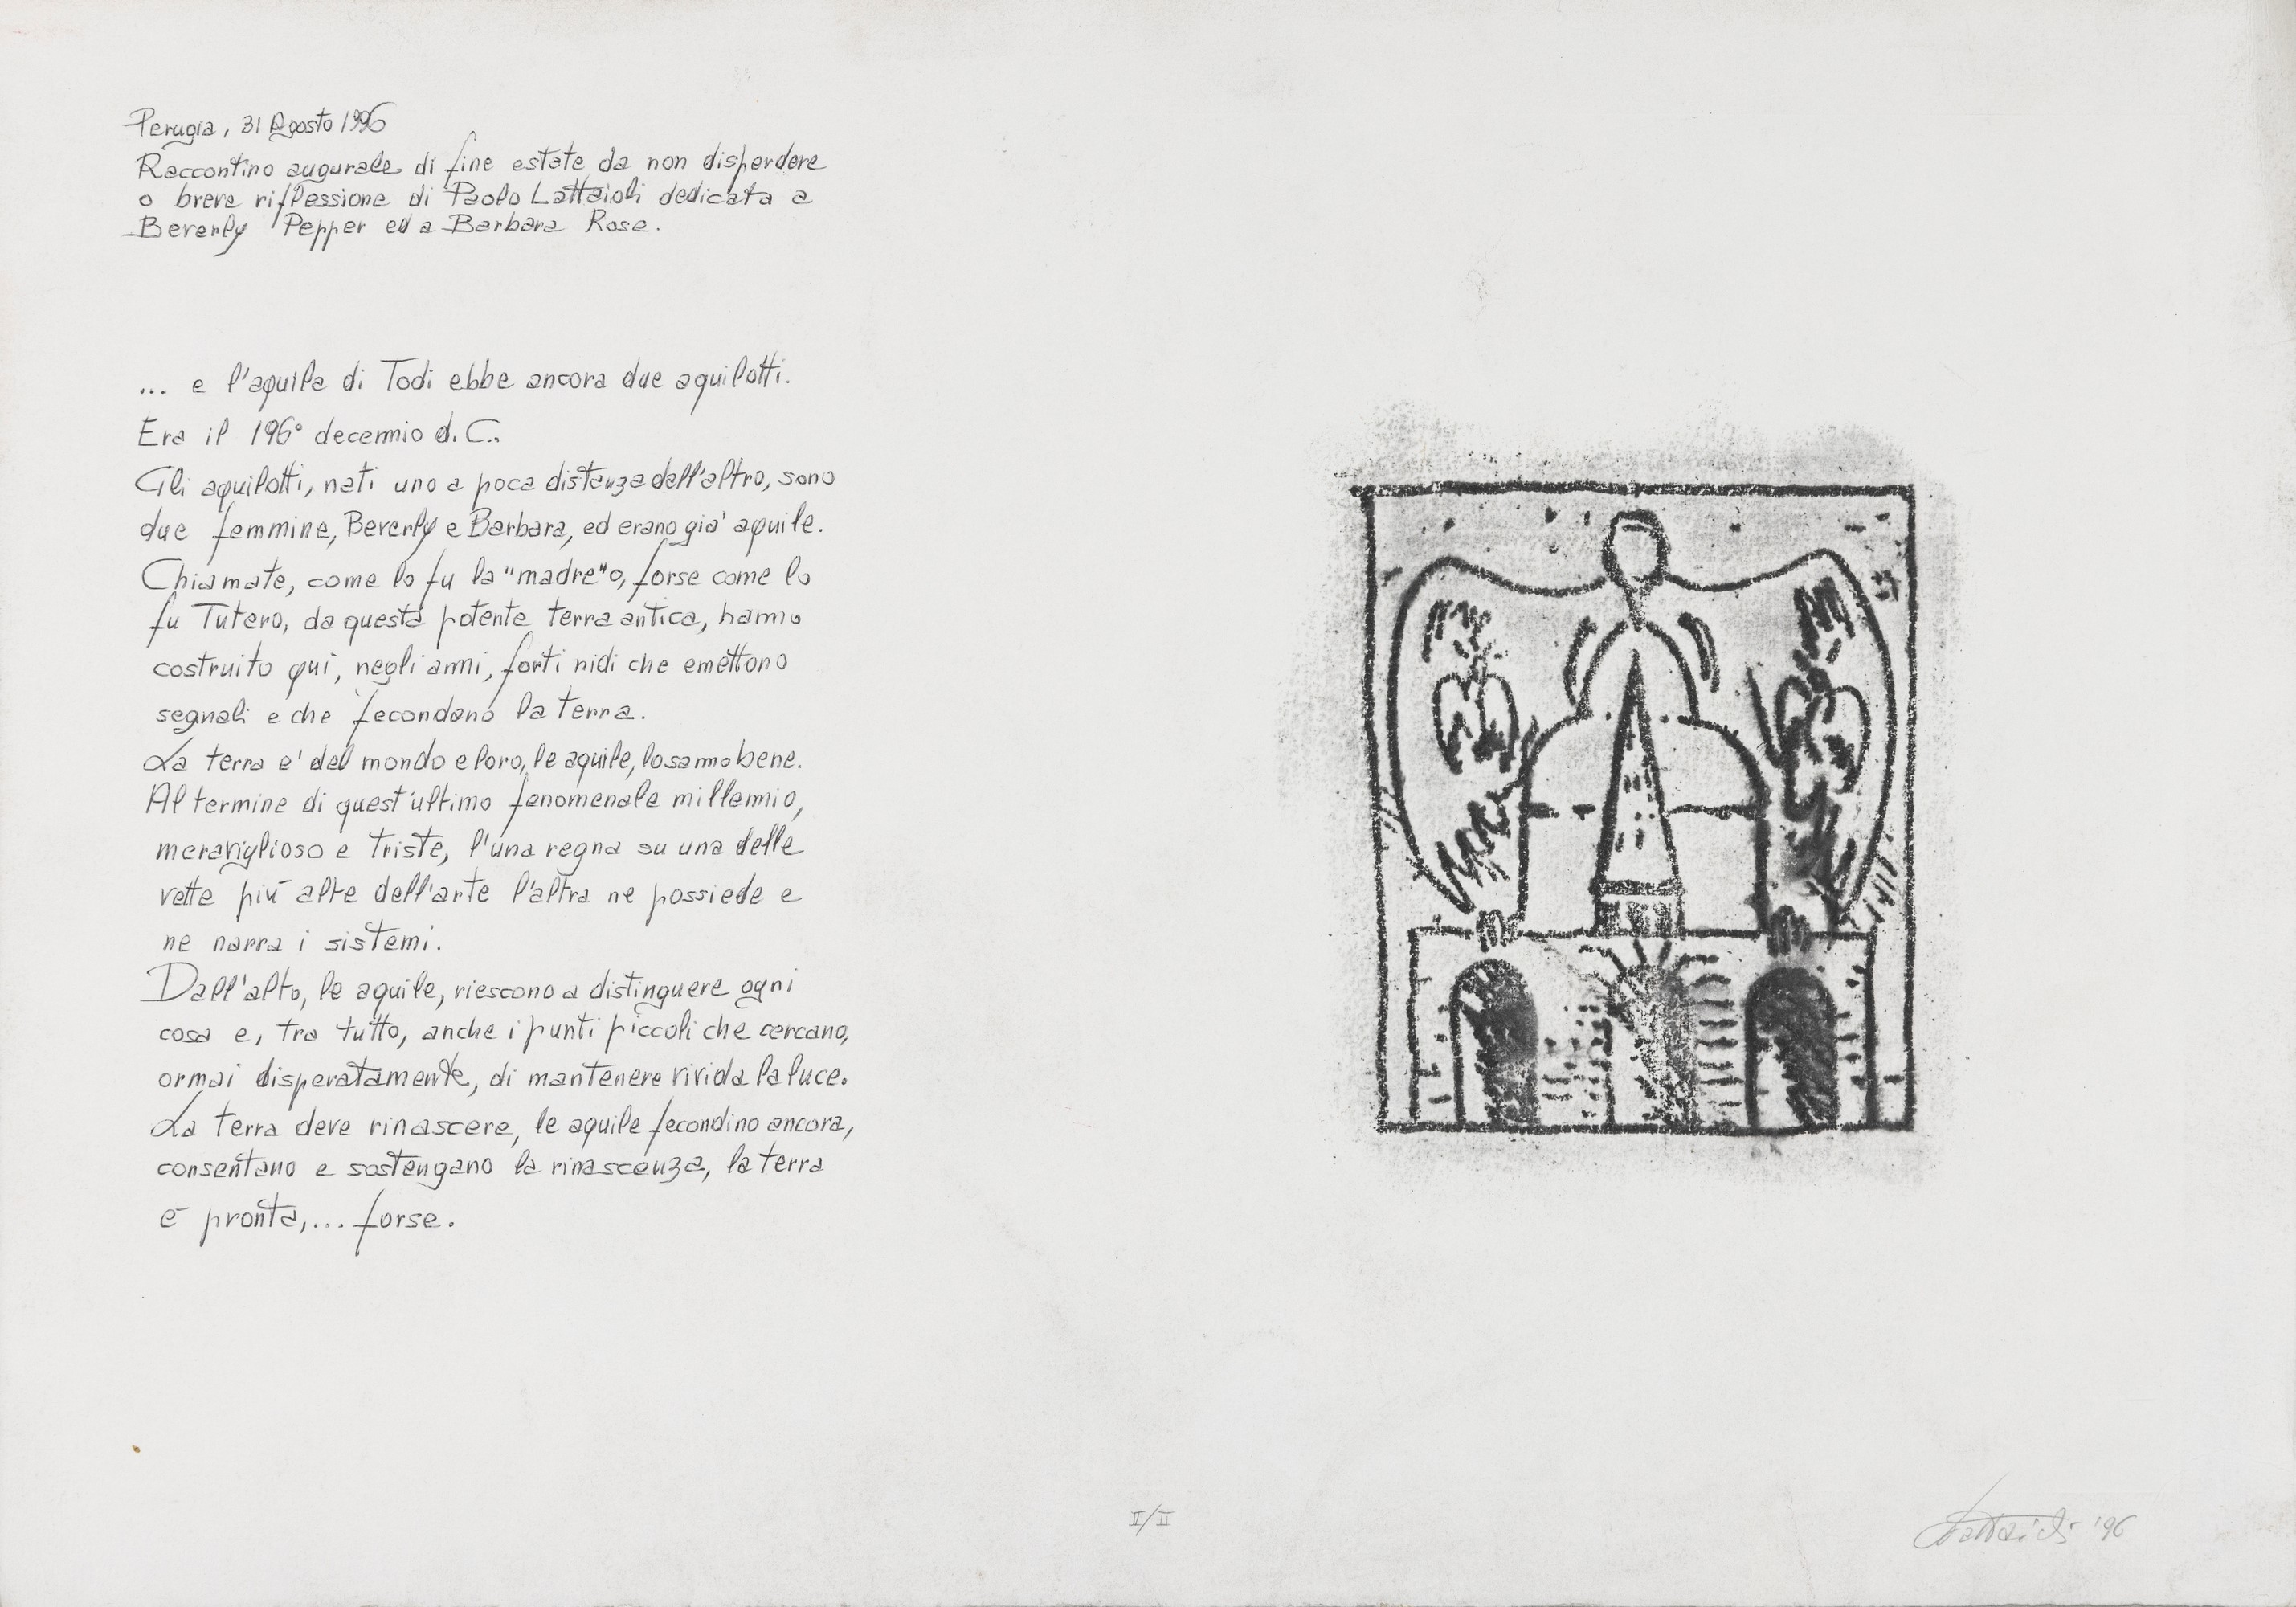 Perugia, 31 Agosto 1996
Raccontino augurale di fine estate da non disperdere
o breve riflessione di Paolo Lattaioli dedicata a
Beverly Pepper ed a Barbara Rose.
... e l'aquila di Todi ebbe ancora due aquilotti.
Era il 196° decennio d. C..
Gli aquilotti, nati uno a poca distanza dall'altro, sono
due femmine, Beverly e Barbara, ed erano gia' aquile.
Chiamate, come lo fu la "madre" o, forse come lo
fu Tutero, da questa potente terra antica, hanno
costruito qui, negli anni, forti nidi che emettono
segnali e che fecondano la terra.
La terra e' del mondo e loro, le aquile, lo sanno bene.
Al termine di quest'ultimo fenomenale millennio,
meraviglioso e triste, l'una regna su una delle
vette più alte dell'arte l'altra ne possiede e
ne narra i sistemi.
Dall'alto, le aquile, riescono a distinguere ogni
cosa e, tra tutto, anche i punti piccoli che cercano,
ormai disperatamente, di mantenere vivida la luce.
La terra deve rinascere, le aquile fecondino ancora,
consentano e sostengano la rinascenza, la terra
è pronta,... forse.
II/II
Lattaioli '96